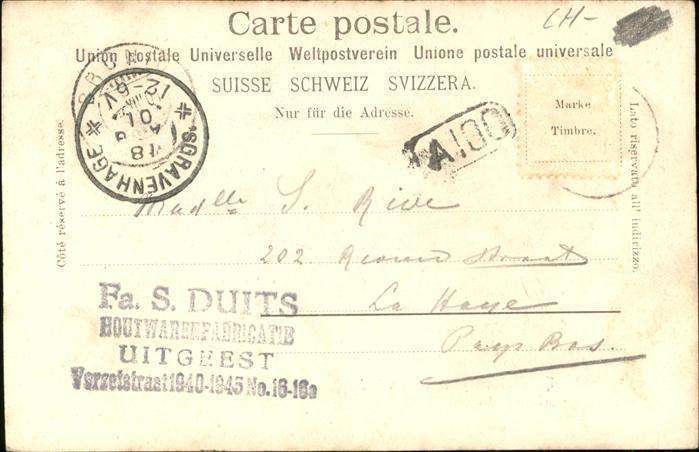 Carte postale.
CH-
Union Postale Universelle Weltpostverein Unione postale universale
SUISSE SCHWEIZ SVIZZERA.
Nur für die Adresse.
Côté réservé à l'adresse.
Lato riservato all' indirizzo.
Marke
Timbre.
'SGRAVENHAGE
12-6V
18
Madlle S.
202
La Haye
Pays Bas.
Fa. S. DUITS
HOUTWARENFABRICATIE
UITGEEST
Verzetstraat 1940-1945 No. 16-16a